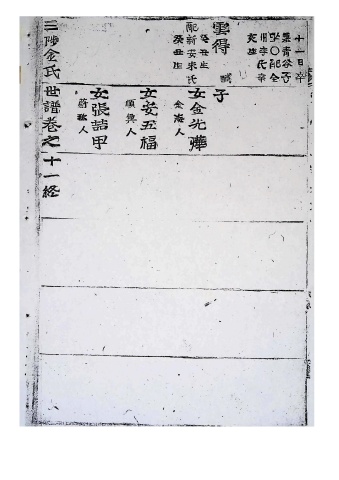 十一日卒
墓青谷子
坐○配全
州李氏辛
亥生
雲得
癸丑生
配新安朱氏
癸丑生
子
女金光燁
金海人
女安五福
順興人
女張喆甲
蔚珍人
三陟金氏世譜卷之十一終